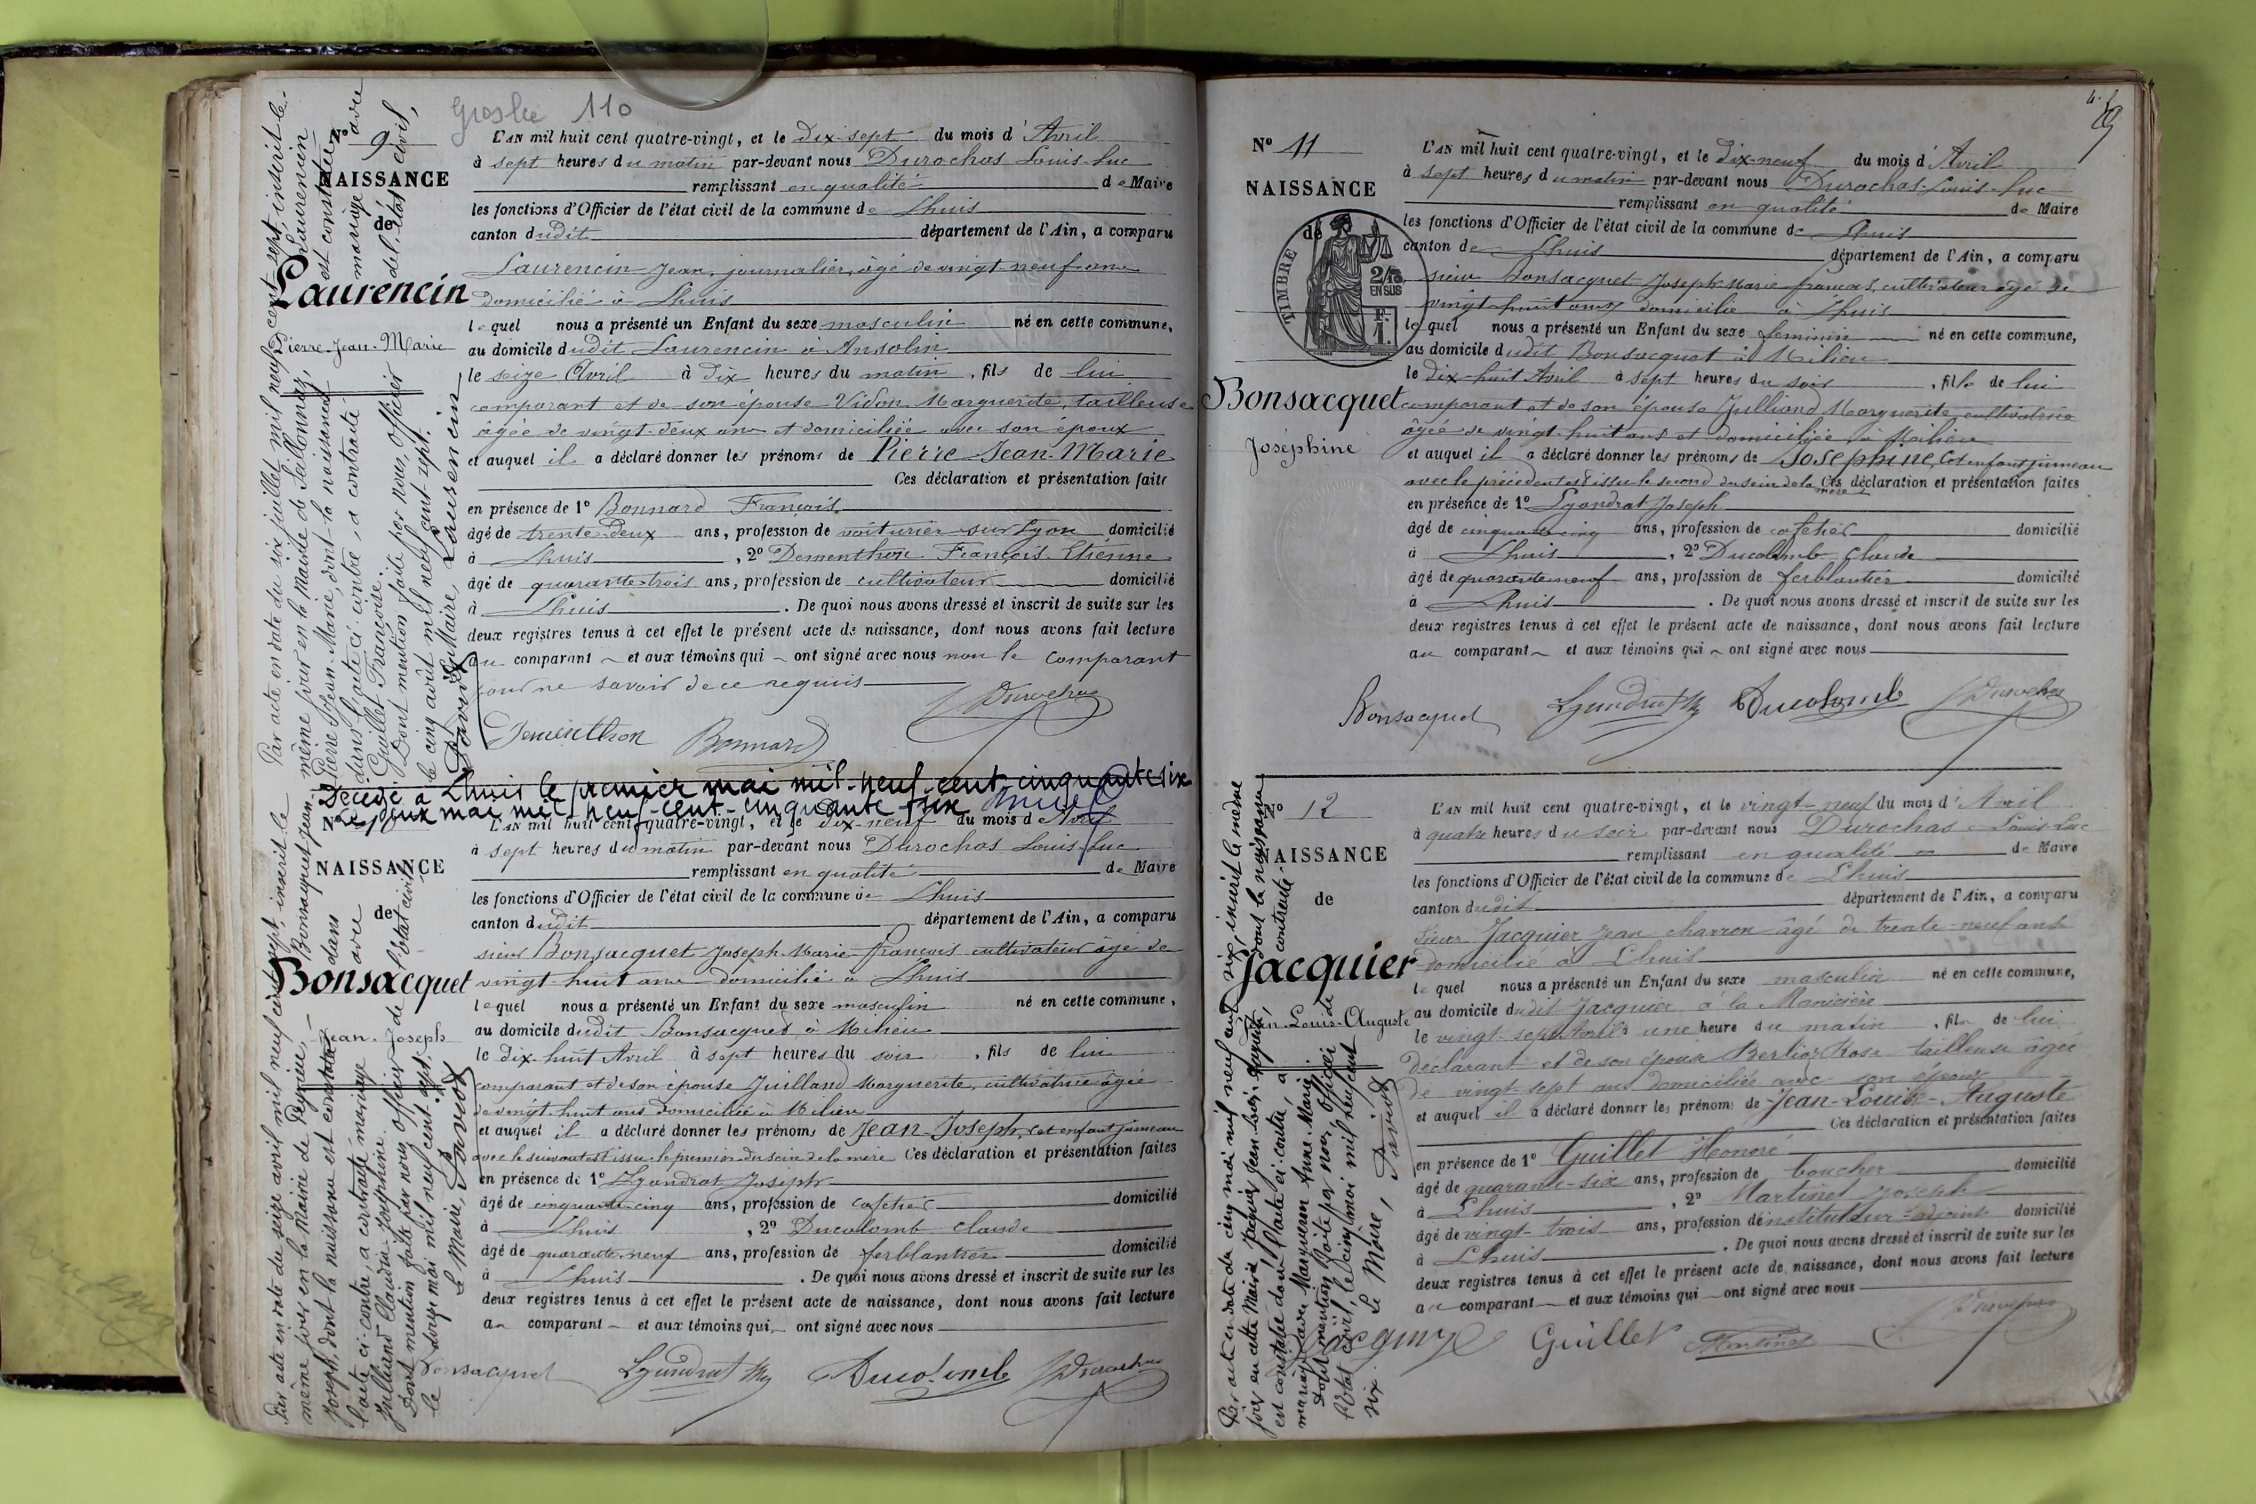 Groslée 110
Nº 9
NAISSANCE
de
Laurencin
Pierre-Jean-Marie
L'AN mil huit cent quatre-vingt, et le dix-sept du mois d'Avril
à sept heures du matin par-devant nous Durochas Louis-Luc
remplissant en qualité de Maire
les fonctions d'Officier de l'état civil de la commune de Lhuis
canton dudit département de l'Ain, a comparu
Laurencin Jean, journalier, âgé de vingt-neuf ans
domicilié à Lhuis
lequel nous a présenté un Enfant du sexe masculin né en cette commune,
au domicile dudit Laurencin à Ansolin
le seize Avril à dix heures du matin, fils de lui
comparant et de son épouse Vidon Marguerite, tailleuse
âgée de vingt-deux ans et domiciliée avec son époux
et auquel il a déclaré donner les prénoms de Pierre Jean-Marie
Ces déclaration et présentation faites
en présence de 1º Bonnard François
âgé de trente-deux ans, profession de voiturier sur Lyon domicilié
à Lhuis, 2º Dementhon François Etienne
âgé de quarante-trois ans, profession de cultivateur domicilié
à Lhuis. De quoi nous avons dressé et inscrit de suite sur les
deux registres tenus à cet effet le présent acte de naissance, dont nous avons fait lecture
au comparant et aux témoins qui ont signé avec nous non le comparant
pour ne savoir de ce requis
Durochas
Dementhon Bonnard
Par acte en date du six juillet mil neuf cent sept, inscrit le
même jour en la Mairie de Laurencin
Pierre Jean-Marie, dont la naissance est constatée
dans l'acte ci-contre, a contracté mariage avec
Guillet Françoise.
Dont mention faite par nous, officier de l'état civil,
le cinq août mil neuf cent sept.
Le Maire,
Laurencin
Décédé à Lhuis le premier mai mil-neuf-cent-cinquante six
le deux mai mil neuf-cent-cinquante-six
Nº 10
NAISSANCE
de
Bonsacquet
Jean-Joseph
L'AN mil huit cent quatre-vingt, et le dix-neuf du mois d'Avril
à sept heures du matin par-devant nous Durochas Louis-Luc
remplissant en qualité de Maire
les fonctions d'Officier de l'état civil de la commune de Lhuis
canton dudit département de l'Ain, a comparu
sieur Bonsacquet Joseph Marie françois cultivateur âgé de
vingt-huit ans domicilié à Lhuis
lequel nous a présenté un Enfant du sexe masculin né en cette commune,
au domicile dudit Bonsacquet à Milieu
le dix-huit Avril à sept heures du soir, fils de lui
comparant et de son épouse Juilland Marguerite, cultivatrice âgée
de vingt-huit ans domiciliée à Milieu
et auquel il a déclaré donner les prénoms de Jean-Joseph, cet enfant jumeau
avec le suivant est issu le premier du sein de la mère Ces déclaration et présentation faites
en présence de 1º Lyandrat Joseph
âgé de cinquante-cinq ans, profession de cafetier domicilié
à Lhuis, 2º Ducolomb Claude
âgé de quarante-neuf ans, profession de ferblantier domicilié
à Lhuis. De quoi nous avons dressé et inscrit de suite sur les
deux registres tenus à cet effet le présent acte de naissance, dont nous avons fait lecture
au comparant et aux témoins qui ont signé avec nous
Bonsacquet Lyandrat Ducolomb Durochas
Par acte en date du seize avril mil neuf cent sept, inscrit le
même jour en la Mairie de Peyrieu, Bonsacquet Jean-
Joseph, dont la naissance est constatée dans
l'acte ci-contre, a contracté mariage avec
Juilland Claudia-Joséphine.
Dont mention faite par nous officier de l'état civil
le douze mai mil neuf cent sept.
Le Maire,
Nº 11
NAISSANCE
de
TIMBRE
2/10
EN SUS
F.
1.
Bonsacquet
Joséphine
L'AN mil huit cent quatre-vingt, et le dix-neuf du mois d'Avril
à sept heures du matin par-devant nous Durochas Louis-Luc
remplissant en qualité de Maire
les fonctions d'Officier de l'état civil de la commune de Lhuis
canton de Lhuis département de l'Ain, a comparu
sieur Bonsacquet Joseph Marie françois, cultivateur âgé de
vingt-huit ans domicilié à Lhuis
lequel nous a présenté un Enfant du sexe féminin né en cette commune,
au domicile dudit Bonsacquet à Milieu
le dix-huit Avril à sept heures du soir, fille de lui
comparant et de son épouse Juilliand Marguerite, cultivatrice
âgée de vingt-huit ans et domiciliée à Milieu
et auquel il a déclaré donner les prénoms de Joséphine, cet enfant jumeau
avec le précédent est issu le second du sein de la mère Ces déclaration et présentation faites
en présence de 1º Lyandrat Joseph
âgé de cinquante-cinq ans, profession de cafetier domicilié
à Lhuis, 2º Ducolomb Claude
âgé de quarante-neuf ans, profession de ferblantier domicilié
à Lhuis. De quoi nous avons dressé et inscrit de suite sur les
deux registres tenus à cet effet le présent acte de naissance, dont nous avons fait lecture
au comparant et aux témoins qui ont signé avec nous
Bonsacquet Lyandrat Ducolomb Durochas
Nº 12
NAISSANCE
de
Jacquier
Jean-Louis-Auguste
L'AN mil huit cent quatre-vingt, et le vingt-neuf du mois d'Avril
à quatre heures du soir par-devant nous Durochas Louis-Luc
remplissant en qualité de Maire
les fonctions d'Officier de l'état civil de la commune de Lhuis
canton dudit département de l'Ain, a comparu
sieur Jacquier Jean charron âgé de trente-neuf ans
domicilié à Lhuis
lequel nous a présenté un Enfant du sexe masculin né en cette commune,
au domicile dudit Jacquier à la Manicière
le vingt-sept Avril à une heure du matin, fils de lui
déclarant et de son épouse Berlioz Rose tailleuse âgée
de vingt-sept ans domiciliée avec son époux
et auquel il a déclaré donner les prénoms de Jean-Louis-Auguste
Ces déclaration et présentation faites
en présence de 1º Guillet Honoré
âgé de quarante-six ans, profession de boucher domicilié
à Lhuis, 2º Martinet Joseph
âgé de vingt-trois ans, profession d'instituteur-adjoint domicilié
à Lhuis. De quoi nous avons dressé et inscrit de suite sur les
deux registres tenus à cet effet le présent acte de naissance, dont nous avons fait lecture
au comparant et aux témoins qui ont signé avec nous
Jacquier Guillet Martinet Durochas
Par acte en date du cinq mai mil neuf cent six, inscrit le même
jour en cette Mairie, Jacquier Jean-Louis-Auguste, dont la naissance
est constatée dans l'acte ci-contre, a contracté
mariage avec Marqueron Anne-Marie.
Dont mention faite par nous, officier de
l'état civil, le cinq mai mil neuf cent
six. Le Maire,